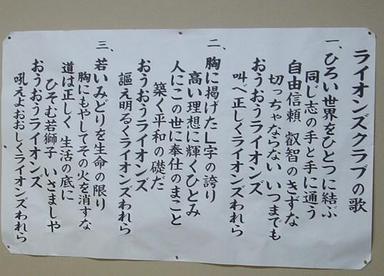 ライオンズクラブの歌
一、ひろい世界をひとつに結ぶ
同じ志の手と手に通う
自由信頼、叡智のきずな
切っちゃならない いつまでも
おうおうライオンズ
叫べ正しくライオンズわれら
二、胸に掲げたL字の誇り
高い理想に輝くひとみ
人にこの世に奉仕のまこと
築く平和の礎だ
おうおうライオンズ
謳え明るくライオンズわれら
三、若いみどりを生命の限り
胸にもやしてその火を消すな
道は正しく 生活の底に
ひそむ若獅子 いさましや
おうおうライオンズ
吼えよおおしくライオンズわれら